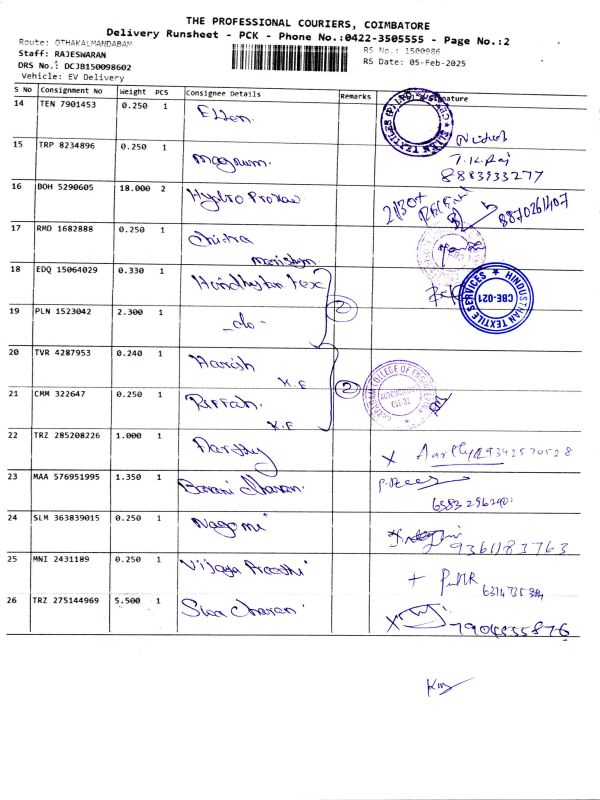 THE PROFESSIONAL COURIERS, COIMBATORE
Delivery Runsheet - PCK - Phone No.:0422-3505555 - Page No.:2
Route: OTHAKALMANDABAM
Staff: RAJESWARAN
DRS No.: DCJB150098602
Vehicle: EV Delivery
RS No.: 1500986
RS Date: 05-Feb-2025
S No Consignment No Weight PCS Consignee Details Remarks Signature
14 TEN 7901453 0.250 1 Ellen.
15 TRP 8234896 0.250 1 Magnum. T.K.Raj
8883933277
16 BOH 5290605 18.000 2 Hydro 8870261407
17 RMD 1682888 0.250 1 Chitra
18 EDQ 15064029 0.330 1 tex
HINDUSTHAN TEXTILE SERVICES
CBE-021
19 PLN 1523042 2.300 1 -do- 2
20 TVR 4287953 0.240 1 Harish
K.E 2
21 CMM 322647 0.250 1 Riffah.
K.E
22 TRZ 285208226 1.000 1 Aarthy X Aarthy 9342570528
23 MAA 576951995 1.350 1 Barani dharan.
24 SLM 363839015 0.250 1 Nagomi 9361183763
25 MNI 2431189 0.250 1 Vijaya
26 TRZ 275144969 5.500 1 Siva charan X 7904355876